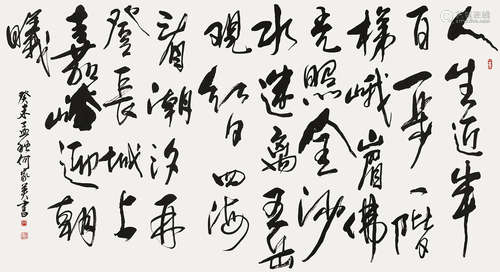 人生近半
百一步一階
梯峨眉佛
光照金沙
水迷離五岳
观红日四海
看潮汐再
登長城上
嘉峪迎朝
曦
癸未孟何家英書